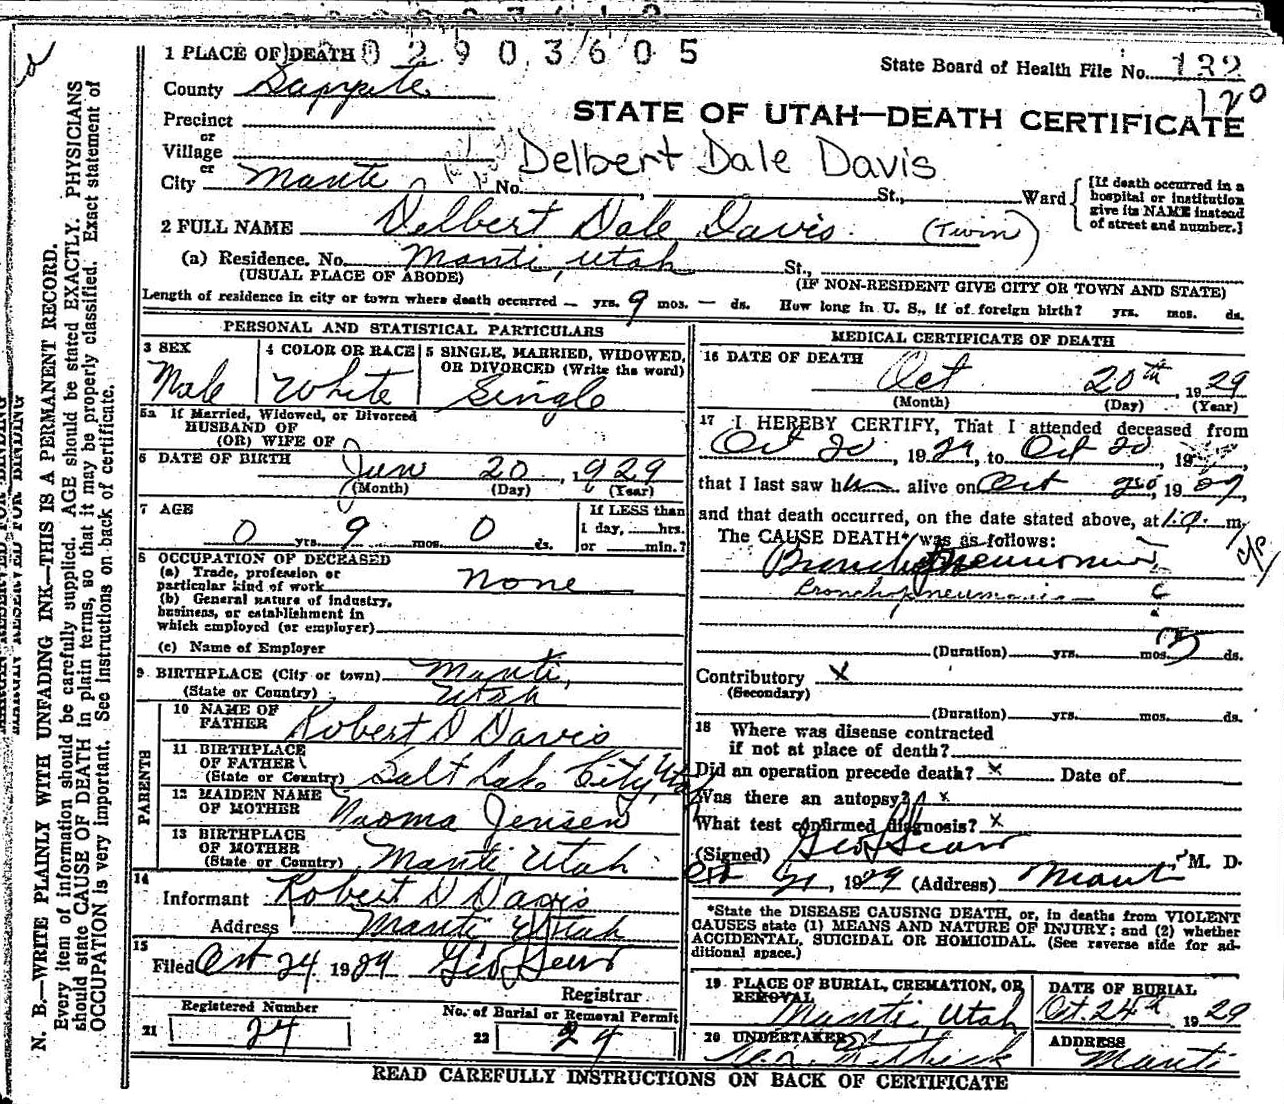 1 PLACE OF DEATH 02903605
State Board of Health File No. 132
120
County Sanpete
STATE OF UTAH—DEATH CERTIFICATE
Precinct
or
Village
or
Delbert Dale Davis
City Manti No. St., Ward
[If death occurred in a
hospital or institution
give its NAME instead
of street and number.]
2 FULL NAME Delbert Dale Davis (Twin)
(a) Residence. No. Manti, Utah St.,
(USUAL PLACE OF ABODE) (IF NON-RESIDENT GIVE CITY OR TOWN AND STATE)
Length of residence in city or town where death occurred — yrs. 9 mos. — ds. How long in U. S., if of foreign birth? yrs. mos. ds.
PERSONAL AND STATISTICAL PARTICULARS
3 SEX Male
4 COLOR OR RACE White
5 SINGLE, MARRIED, WIDOWED,
OR DIVORCED (Write the word)
Single
5a If Married, Widowed, or Divorced
HUSBAND OF
(OR) WIFE OF
6 DATE OF BIRTH Jun 20, 1929
(Month) (Day) (Year)
7 AGE
0 yrs. 9 mos. 0 ds.
If LESS than
1 day, hrs.
or min.?
8 OCCUPATION OF DECEASED
(a) Trade, profession or
particular kind of work None
(b) General nature of industry,
business, or establishment in
which employed (or employer)
(c) Name of Employer
9 BIRTHPLACE (City or town) Manti,
(State or Country) Utah
PARENTS
10 NAME OF
FATHER Robert D Davis
11 BIRTHPLACE
OF FATHER
(State or Country) Salt Lake City, Utah
12 MAIDEN NAME
OF MOTHER Naoma Jensen
13 BIRTHPLACE
OF MOTHER
(State or Country) Manti Utah
14
Informant Robert D Davis
Address Manti Utah
15
Filed Oct 24 1929 Geo Sears
Registrar
Registered Number
21 24
No. of Burial or Removal Permit
22 24
MEDICAL CERTIFICATE OF DEATH
16 DATE OF DEATH
Oct 20th, 1929
(Month) (Day) (Year)
17 I HEREBY CERTIFY, That I attended deceased from
Oct 20, 1929, to Oct 20, 19
that I last saw him alive on Oct 20, 1929,
and that death occurred, on the date stated above, at m.
The CAUSE DEATH* was as follows:
Bronchopneumonia
Bronchopneumonia
(Duration) yrs. mos. 3 ds.
Contributory x
(Secondary)
(Duration) yrs. mos. ds.
18 Where was disease contracted
if not at place of death?
Did an operation precede death? x Date of
Was there an autopsy? x
What test confirmed diagnosis? x
(Signed) Geo Sears M. D.
Oct 21, 1929 (Address) Manti
*State the DISEASE CAUSING DEATH, or, in deaths from VIOLENT
CAUSES state (1) MEANS AND NATURE OF INJURY; and (2) whether
ACCIDENTAL, SUICIDAL OR HOMICIDAL. (See reverse side for ad-
ditional space.)
19 PLACE OF BURIAL, CREMATION, OR
REMOVAL
Manti, Utah
DATE OF BURIAL
Oct. 24th 1929
20 UNDERTAKER
ADDRESS
Manti
READ CAREFULLY INSTRUCTIONS ON BACK OF CERTIFICATE
MARGIN RESERVED FOR BINDING
N. B.—WRITE PLAINLY WITH UNFADING INK—THIS IS A PERMANENT RECORD.
Every item of information should be carefully supplied. AGE should be stated EXACTLY. PHYSICIANS
should state CAUSE OF DEATH in plain terms, so that it may be properly classified. Exact statement of
OCCUPATION is very important. See instructions on back of certificate.